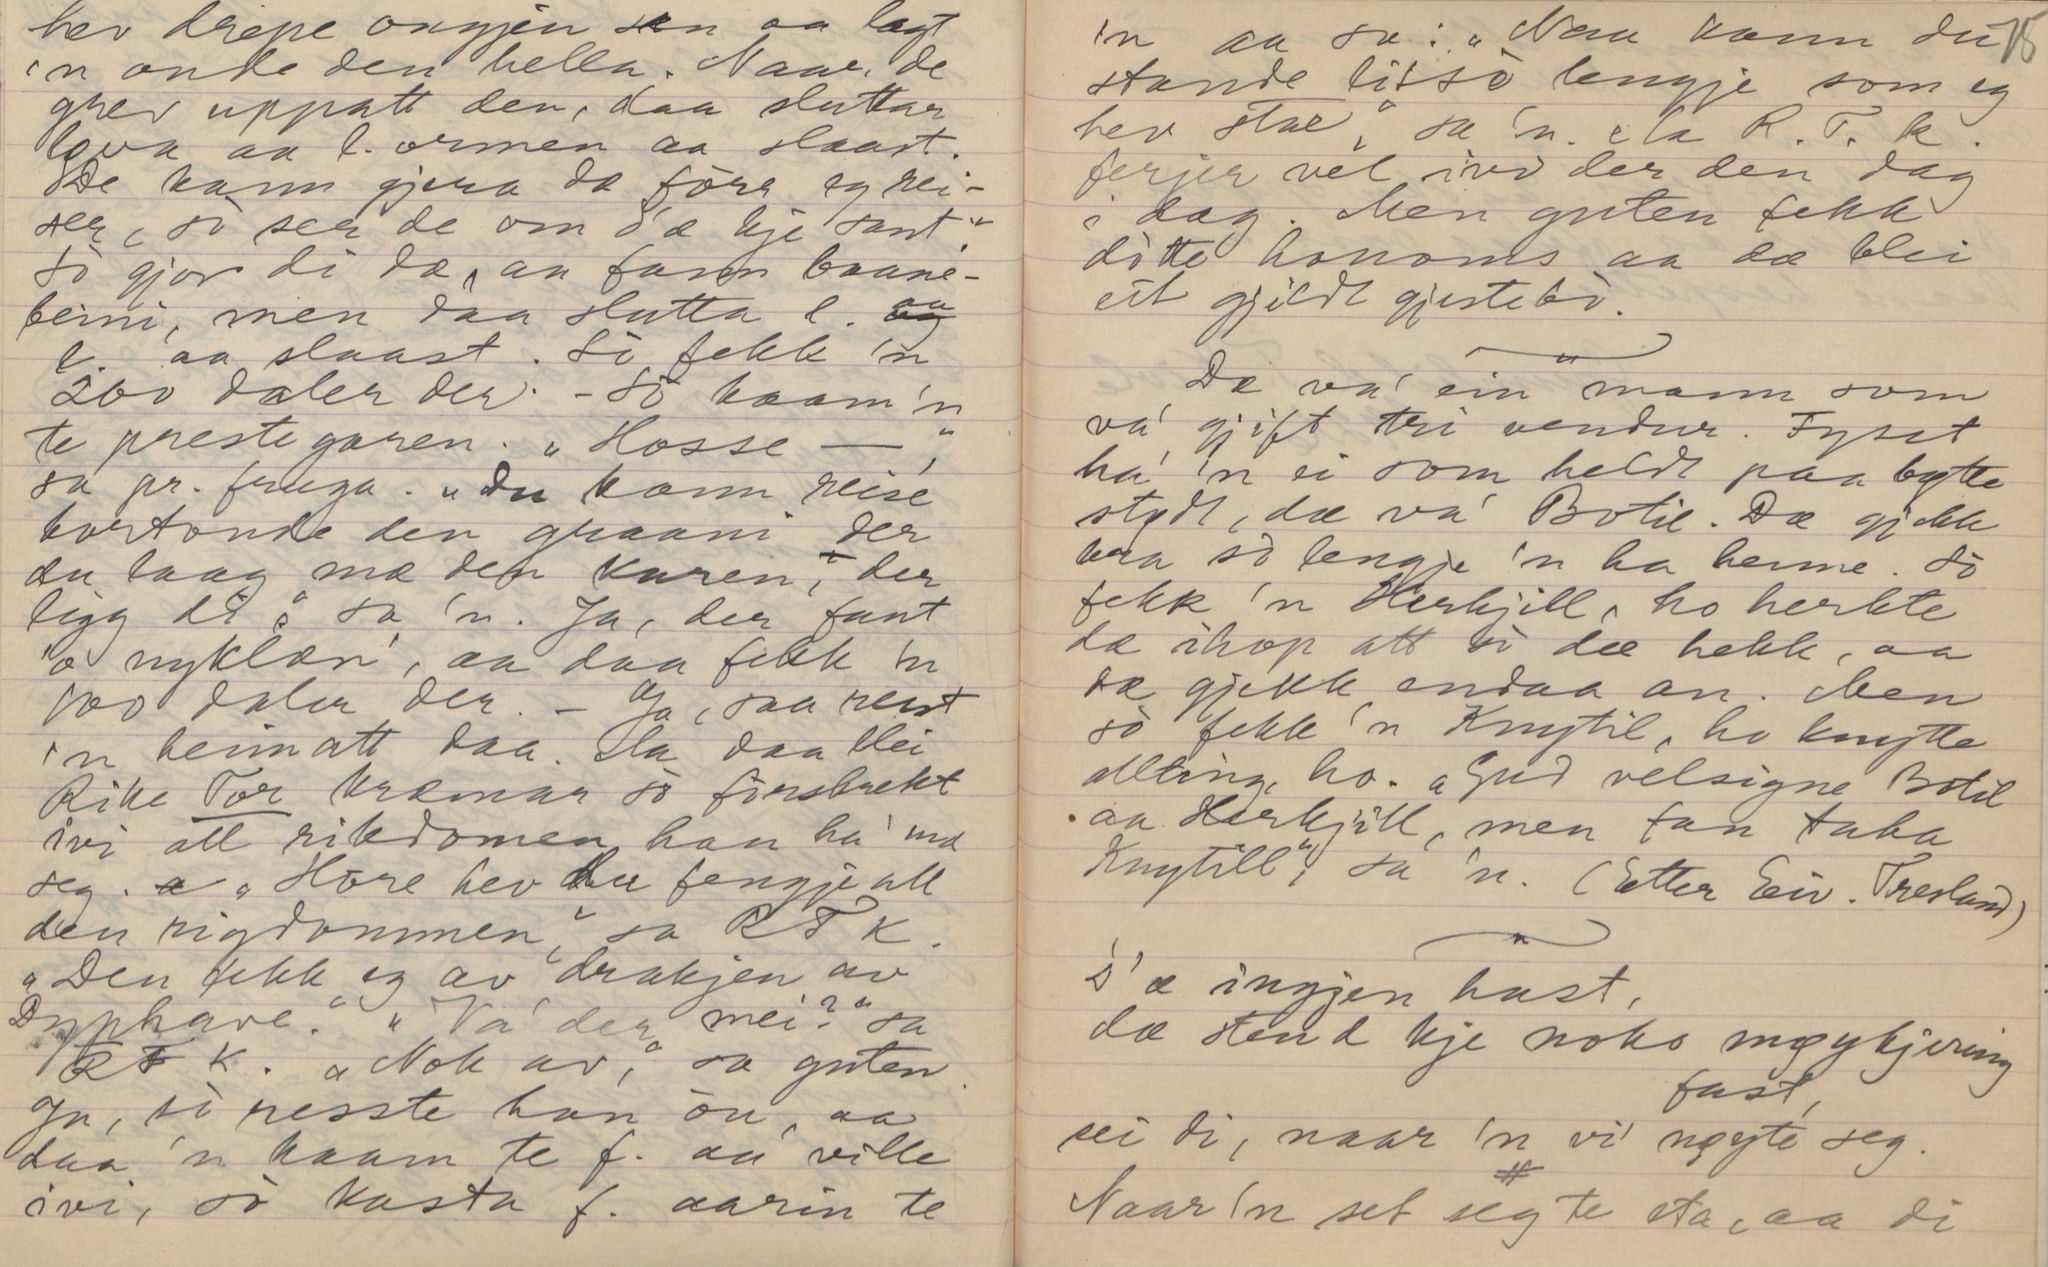 hev drepe ongjen sin aa lagt
'n onde den hella. Naar de
grev uppatt den, daa sluttar
løva aa l.ormen aa slaast.
De kann gjera dæ före eg rei-
ser, so ser de om d'æ kje sant."
So gjor di dæ, aa fann baane-
beini, men daa slutta l. aa
l. aa slaast. So fekk 'n
200 daler der. - So kaam 'n
te prestegaren. "Hosse —,"
sa pr. fruga. "Du kann reise
bortonde den graani der
du laag mæ den karen, der
ligg di," sa 'n. Ja, der fant
'o nyklan', aa daa fekk 'n
100 daler der. - Ja, saa reist
'n heimatt daa. Ja daa blei
Rike Tor kræmar so förskrekt
ivi all rikdomen han ha' mæ
seg. "Hore hev du fengje all
den rigdommen," sa R T K.
"Den fekk eg av drakjen av
Dyphave." "Va' der mei?" sa
R T K. "Nok av," sa guten.
Ja, so resste han ou, aa
daa 'n kaam te f. aa ville
ivi, so kasta f. aarin te
75
'n aa sa: "Naa kann du
stande li's so lengje som eg
hev stae," sa 'n. Ja R. T. k.
ferjer vel ivi der den dag
i dag. Men guten fekk
dotte honoms aa dæ blei
eit gjildt gjestebo.
Dæ va' ein mann som
va' gjift tri vendur. Fyst
ha' 'n ei som heldt paa bytte
stydt, dæ va' Botil. Dæ gjekk
bra so lengje 'n ha henne. So
fekk 'n Herkjill, ho herkte
dæ ihop att so dæ hekk, aa
dæ gjekk endaa an. Men
so fekk 'n Knytil, ho knytte
allting, ho. "Gud velsigne Botil
aa Herkjill, men fan taka
Knytill", sa 'n. (Etter Eiv. Tresland)
D'æ ingjen hast,
dæ stend kje noko møykjering
fast,
sei di, naar 'n vi' nøyte seg.
Naar 'n set seg te eta, aa di